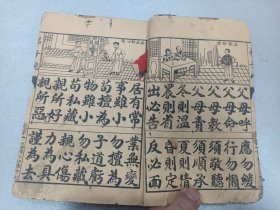 父母呼 應勿緩
父母命 行勿懶
父母教 須敬聽
父母責 須順承
冬則溫 夏則凊
晨則省 昏則定
出必告 反必面
居有常 業無變
事雖小 勿擅為
苟擅為 子道虧
物雖小 勿私藏
苟私藏 親心傷
親所好 力為具
親所惡 謹為去